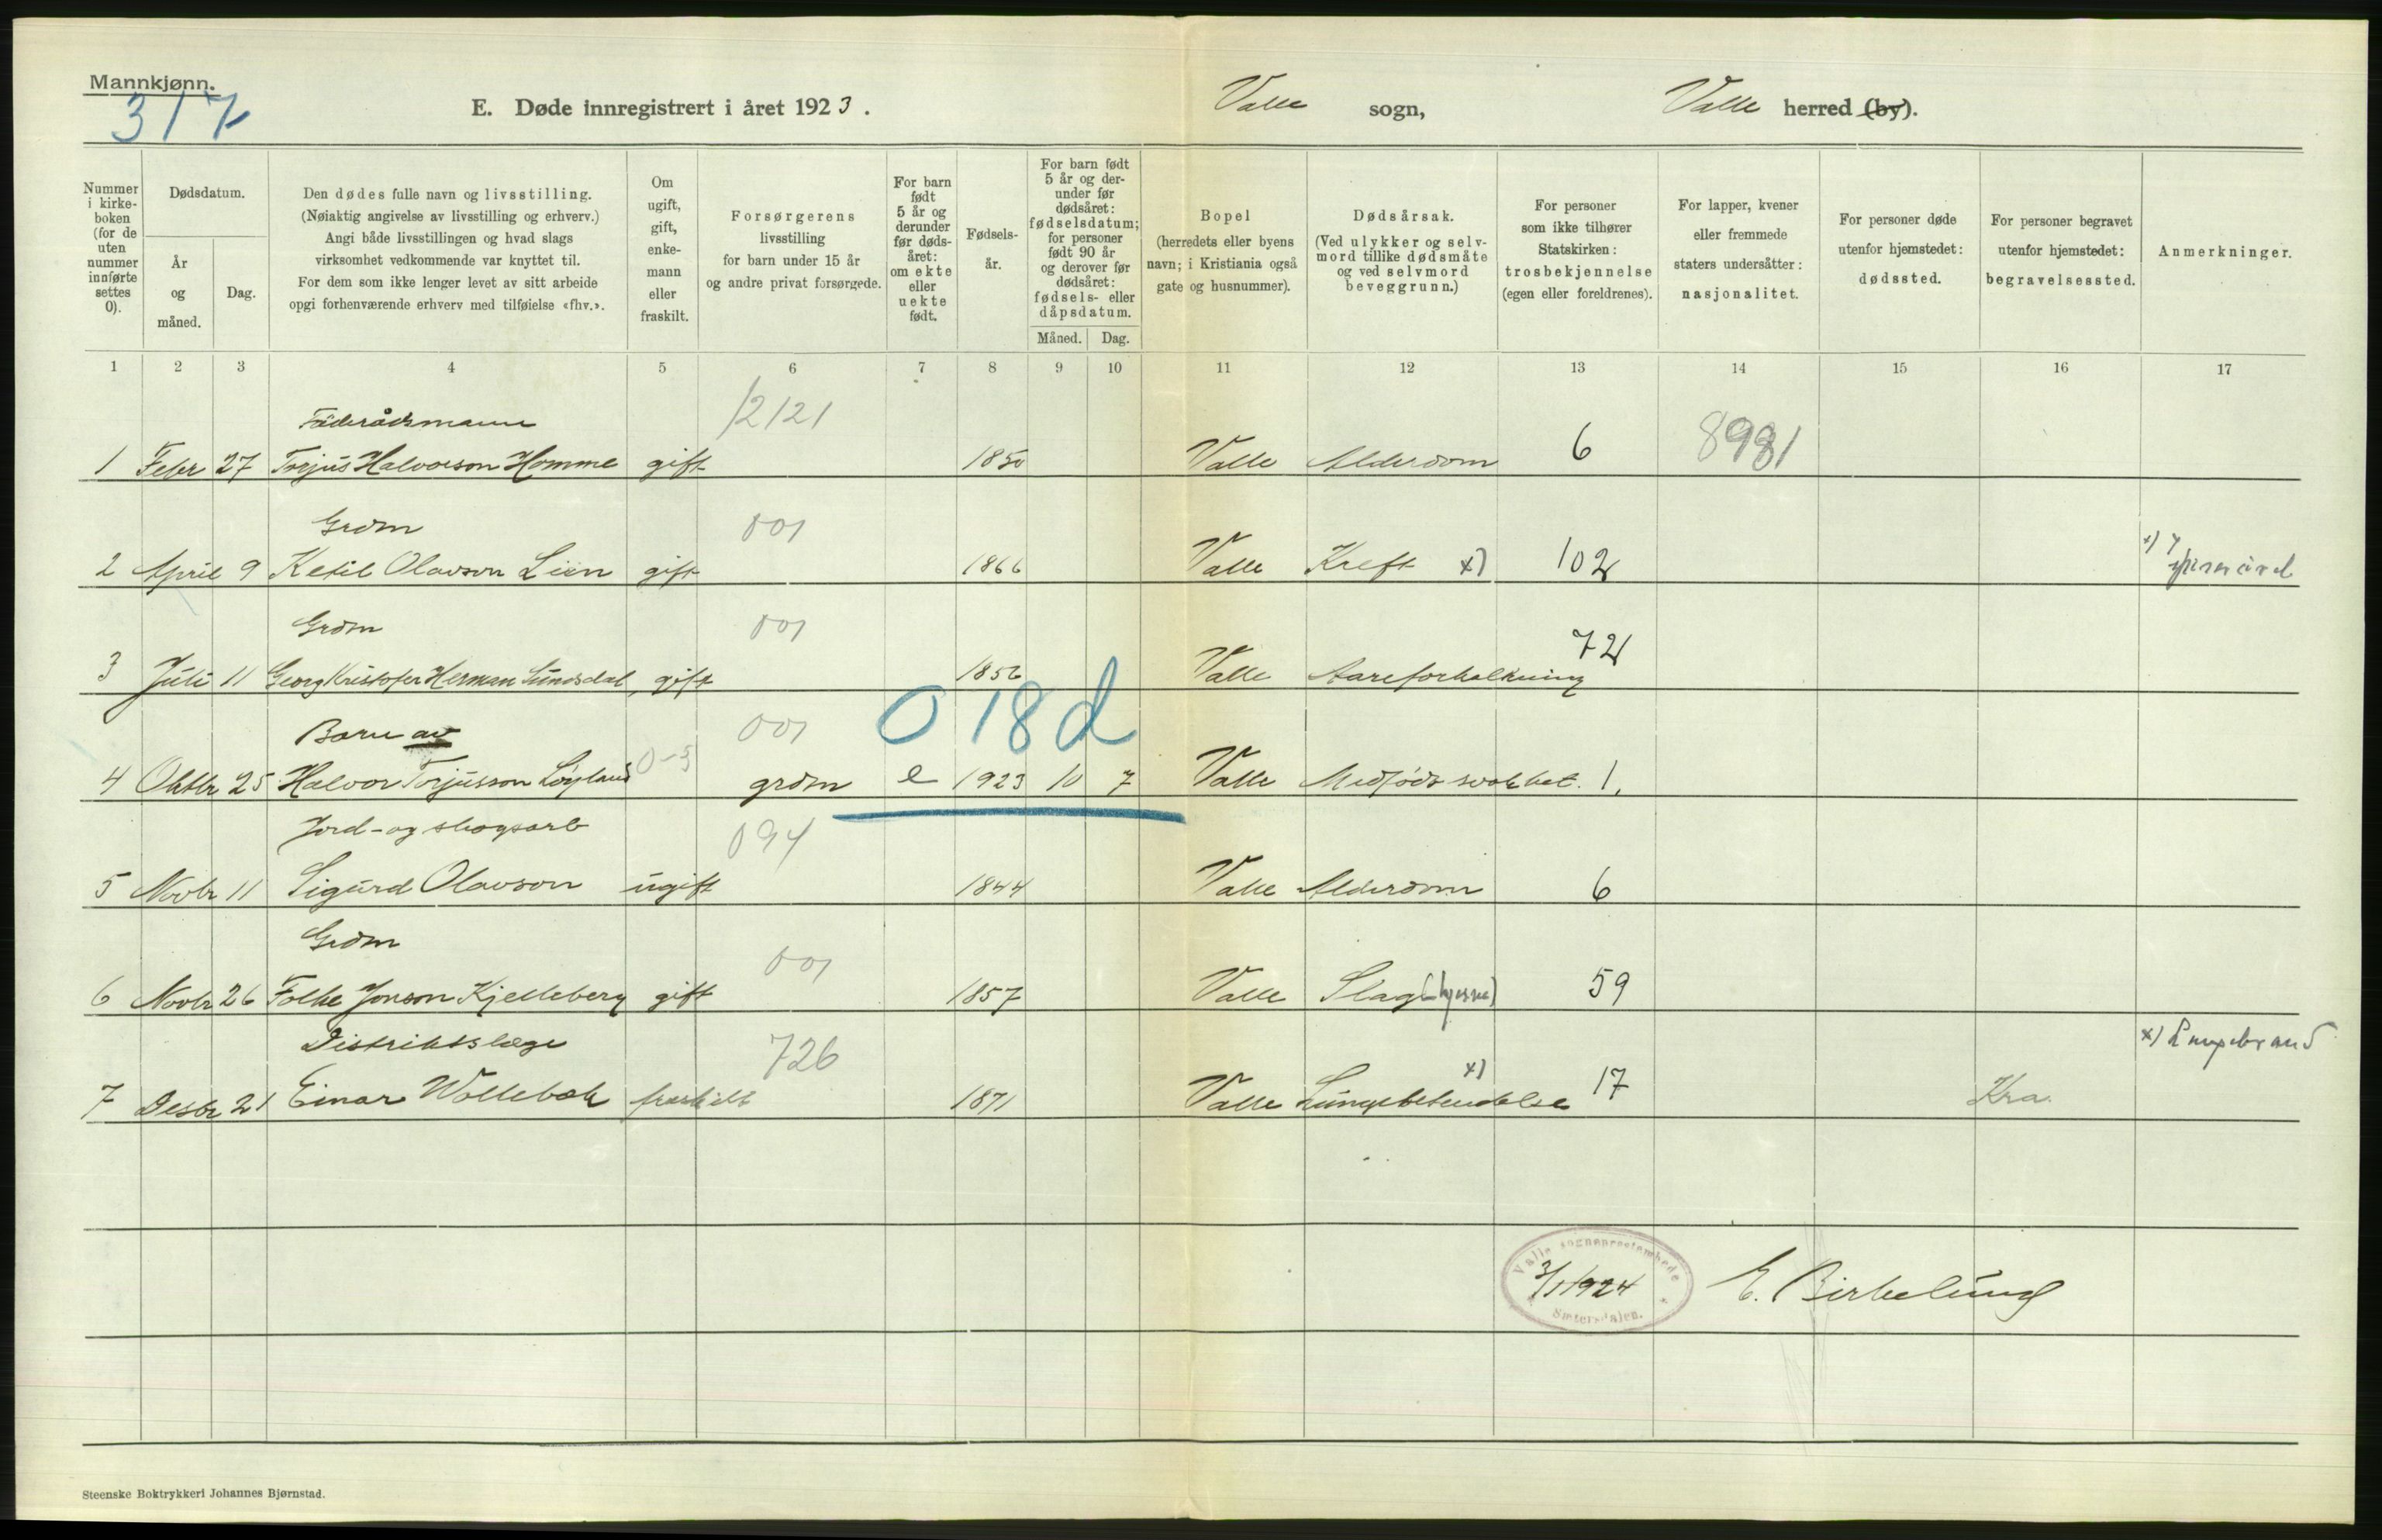 Mannkjønn.
317
E. Døde innregistrert i året 1923.
Valle sogn,
Valle herred (by).
Nummer i kirke-boken (for de uten nummer innførte settes 0).
Dødsdatum.
År og måned.
Dag.
Den dødes fulle navn og livsstilling.
(Nøiaktig angivelse av livsstilling og erhverv.)
Angi både livsstillingen og hvad slags
virksomhet vedkommende var knyttet til.
For dem som ikke lenger levet av sitt arbeide
opgi forhenværende erhverv med tilføielse «fhv.».
Om ugift, gift, enke-mann eller fraskilt.
Forsørgerens livsstilling for barn under 15 år og andre privat forsørgede.
For barn født 5 år og derunder før døds-året: om ekte eller uekte født.
Fødsels-år.
For barn født 5 år og der-under før dødsåret: fødselsdatum; for personer født 90 år og derover før dødsåret: fødsels- eller dåpsdatum.
Måned. Dag.
Bopel (herredets eller byens navn; i Kristiania også gate og husnummer).
Dødsårsak. (Ved ulykker og selv-mord tillike dødsmåte og ved selvmord beveggrunn.)
For personer som ikke tilhører Statskirken: trosbekjennelse (egen eller foreldrenes).
For lapper, kvener eller fremmede staters undersåtter: nasjonalitet.
For personer døde utenfor hjemstedet: dødssted.
For personer begravet utenfor hjemstedet: begravelsessted.
Anmerkninger.
1 2 3 4 5 6 7 8 9 10 11 12 13 14 15 16 17
Føderådsmann 12121
1 Febr 27 Torjus Halvorson Homme gift 1850 Valle Alderdom 6 8981
Grdm 001
2 April 9 Ketil Olavson Lien gift 1866 Valle Kreft x) 102 x)
Grdm 001
3 Juli 11 Georg Kristofer Herman Sundsdal gift 1856 Valle Aareforkalkning 72
Barn av 001 018d
4 Oktbr 25 Halvor Torjusson Løyland 0-5 grdm e 1923 10 7 Valle Medfødt svakhet. 1.
Jord- og skogsarb 094
5 Novbr 11 Sigurd Olavson ugift 1844 Valle Alderdom 6
Grdm 001
6 Novbr 26 Folke Jonson Kjelleberg gift 1857 Valle Slag (hjerne) 59
Distriktslæge 726 x) Lungebrand
7 Desbr 21 Einar Wollebæk fraskilt 1871 Valle Lungebetendelse x) 17 Kra.
Valle sogneprestembede
3/1 1924
Sætersdalen.
E. Birkelund
Steenske Boktrykkeri Johannes Bjørnstad.